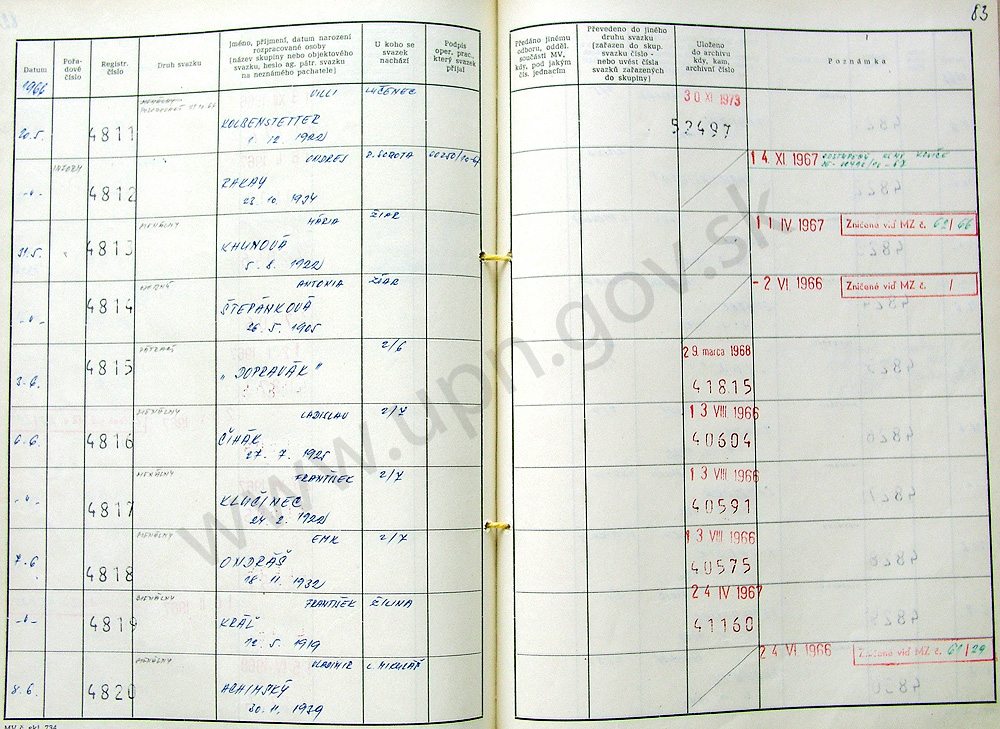 83
Datum
Pořa-
dové
číslo
Registr.
číslo
Druh svazku
Jméno, příjmení, datum narození
rozpracované osoby
[název skupiny nebo objektového
svazku, heslo ag. pátr. svazku
na neznámého pachatele]
U koho se
svazek
nachází
Podpis
oper. prac.,
který svazek
přijal
Předáno jinému
odboru, odděl.
součásti MV,
kdy, pod jakým
čís. jednacím
Převedeno do jiného
druhu svazku
[zařazen do skup.
svazku číslo -
nebo uvést čísla
svazků zařazených
do skupiny]
Uloženo
do archivu
kdy, kam,
archivní číslo
Poznámka
1966
VILLI LUČENEC
30 XI 1973
20.5. 4811 KOLBENSTETTER 52497
1. 12. 1922
INFORM ONDREJ R. SOBOTA
14. XI 1967
-"- 4812 ZAKAY
23. 10. 1934
MENÁLNY MÁRIA ŽIAR
11 IV 1967 Zničeno viď MZ č. 62/66
31.5. 4813 KHUNOVÁ
5. 8. 1922
ANTONIA ŽIAR
- 2 VI 1966 Zničené viď MZ č. /
-"- 4814 ŠTEPÁNKOVÁ
26. 5. 1905
2/6
29. marca 1968
3.6. 4815 "DOPRAVÁK" 41815
MENÁLNY LADISLAV 2/7
13 VIII 1966
6.6. 4816 ČIHÁK 40604
27. 7. 1925
MENÁLNY FRANTIŠEK 2/7
13 VIII 1966
-"- 4817 KLUČINEC 40591
24. 2. 1922
MENÁLNY EMK 2/7
13 VIII 1966
7.6 4818 ONDRÁŠ 40575
18. 11. 1932
MENÁLNY FRANTIŠEK ŽILINA
24 IV 1967
-"- 4819 KRÁĽ 41160
12. 5. 1919
MENÁLNY VLADIMIR L. MIKULÁŠ
24 VI 1966 Zničeno viď MZ č. 61/29
8.6. 4820
30. 11. 1939
www.upn.gov.sk